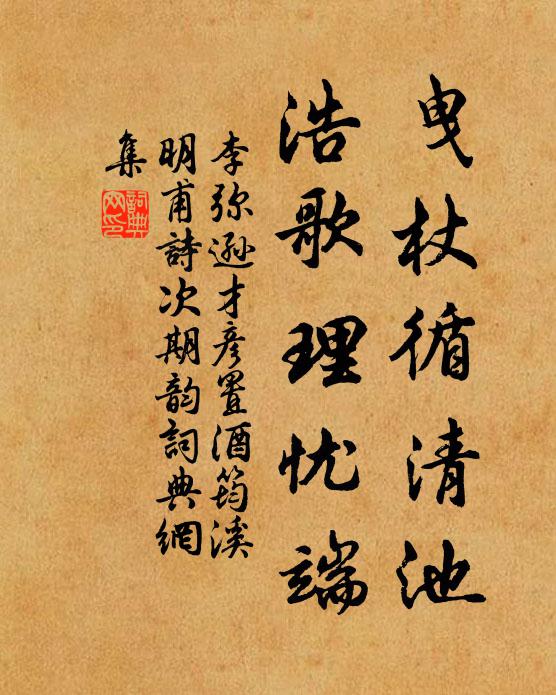 曳杖循清池
浩歌理忧端
李弥逊才彦置酒筠溪
明甫詩次期韵詞典網
集
詞典网印